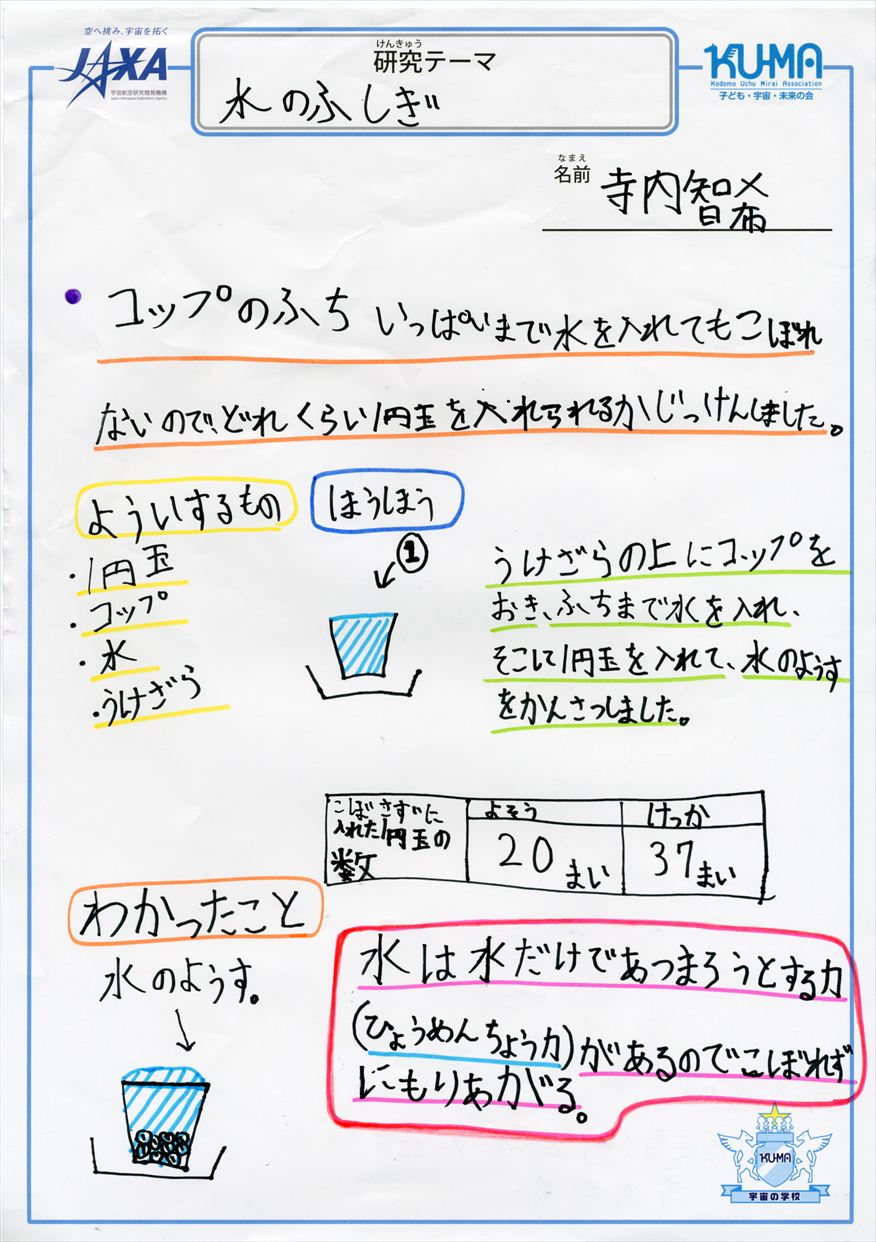 空へ挑み、宇宙を拓く
JAXA
宇宙航空研究開発機構
Japan Aerospace Exploration Agency
けんきゅう
研究テーマ
水のふしぎ
KU-MA
Kodomo Uchu Mirai Association
子ども・宇宙・未来の会
なまえ
名前
寺内智希
コップのふち いっぱいまで水を入れてもこぼれ
ないので、どれくらい1円玉を入れられるかじっけんしました。
よういするもの
・1円玉
・コップ
・水
・うけざら
ほうほう
①
うけざらの上にコップを
おき、ふちまで水を入れ、
そこに1円玉を入れて、水のようす
をかんさつしました。
こぼさずに
入れた1円玉の
数
よそう
20まい
けっか
37まい
わかったこと
水のようす。
水は水だけであつまろうとする力
(ひょうめんちょう力)があるのでこぼれず
にもりあがる。
KUMA
宇宙の学校